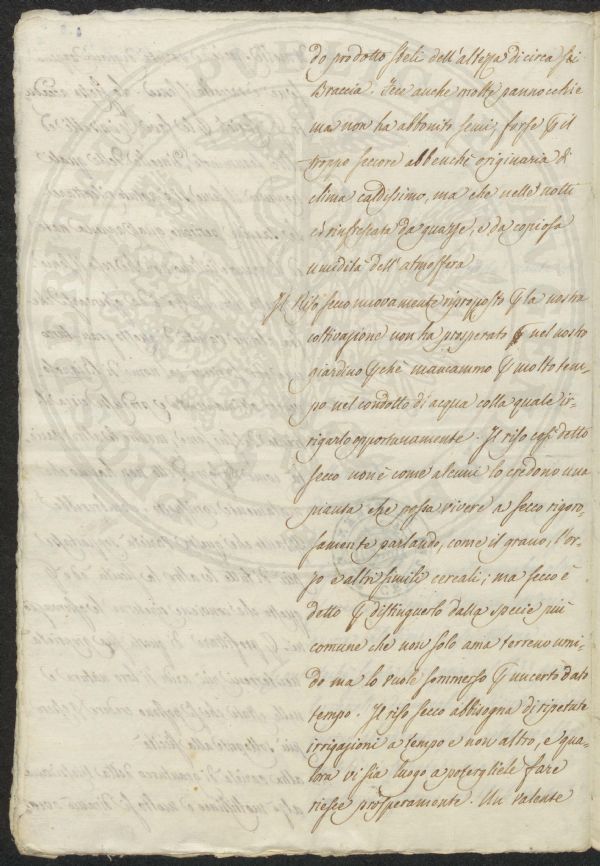 do prodotto steli dell'altezza di circa sei
Braccia. Fece anche molte pannocchie
ma non ha abbonito semi, forse p il
troppo seccore abbenchè originaria di
clima caldissimo, ma che nelle notti
è rinfrescata da guazze, e da copiosa
umidità dell'atmosfera
Il Riso secco nuovamente riproposto p la nostra
coltivazione non ha prosperato nel nostro
giardino p chè mancammo p molto tem-
po nel condotto di acqua colla quale ir-
rigarlo opportunamente. Il riso così detto
secco non è come alcuni lo credono una
pianta che possa vivere a secco rigoro-
samente parlando, come il grano, l'or-
zo e altri simili cereali; ma secco è
detto p distinguerlo dalla specie più
comune che non solo ama terreno umi-
do ma lo vuole sommerso p un certo dato
tempo. Il riso secco abbisogna di ripetute
irrigazioni a tempo e non altro, e qua-
lora vi sia luogo a potergliele fare
riesce prosperamente. Un valente